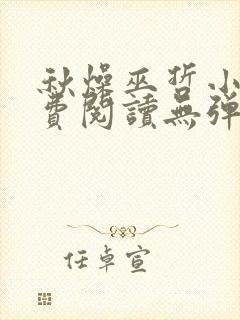 秋燥巫哲小
費閱讀無彈
任卓宣